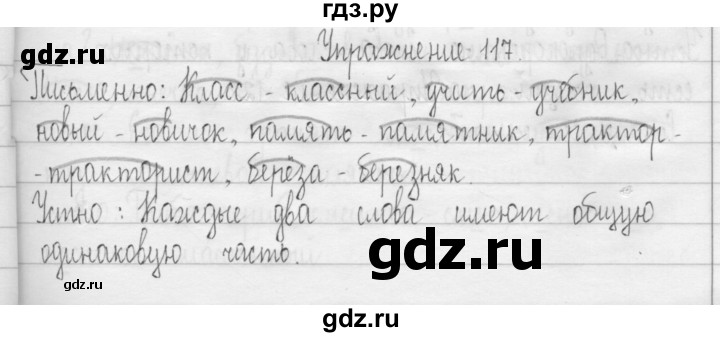 гдз.ру
gdz.ru
Упражнение 117.
Письменно: Класс - классный, учить - учебник,
новый - новичок, память - памятник, трактор -
- тракторист, берёза - березняк.
Устно: Каждые два слова имеют общую
одинаковую часть.
gdz.ru
gdz.ru
gdz.ru